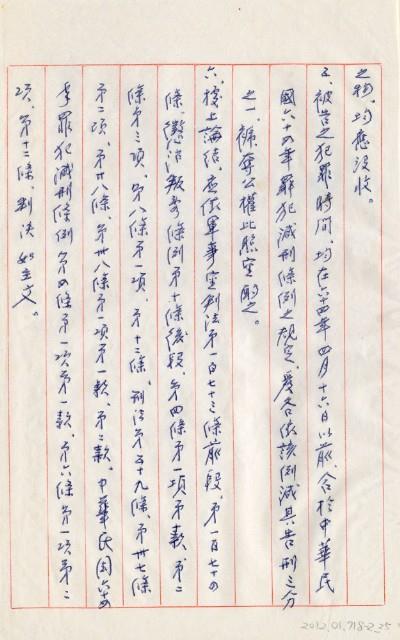 之物，均應沒收。
五、被告之犯罪時間，均在六十四年四月十六日以前，合於中華民
國六十四年罪犯減刑條例之規定，爰各依該例減其告刑三分
之一，褫奪公權比照室酌之。
六、據上論結，應依軍事審判法第一百七十三條前段，第一百七十
條，懲治叛亂條例第十條後段，第四條第一項第款、第二
條第三項、第八條第一項、第十二條，刑法第五十九條、第卅七條
第二項、第卅八條第一項第一款、第二款。中華民國六十四
年罪犯減刑條例第四條第一項第一款、第六條第一項、第二
項、第十二條，判決如主文。
2012.01.718-2_25